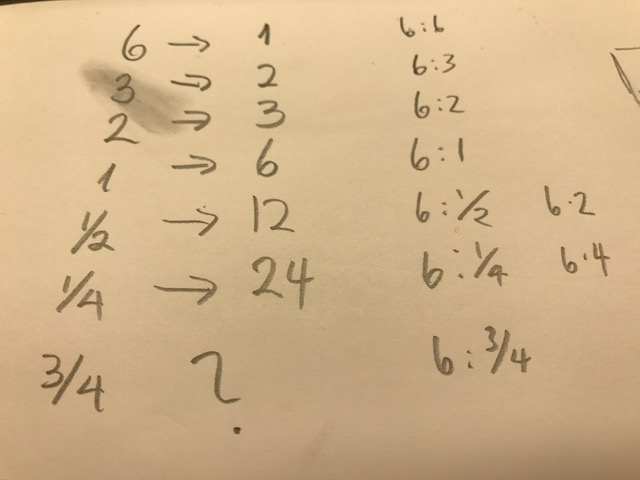 6 → 1 6:6
3 → 2 6:3
2 → 3 6:2
1 → 6 6:1
1/2 → 12 6:1/2 6·2
1/4 → 24 6:1/4 6·4
3/4 ? 6:3/4